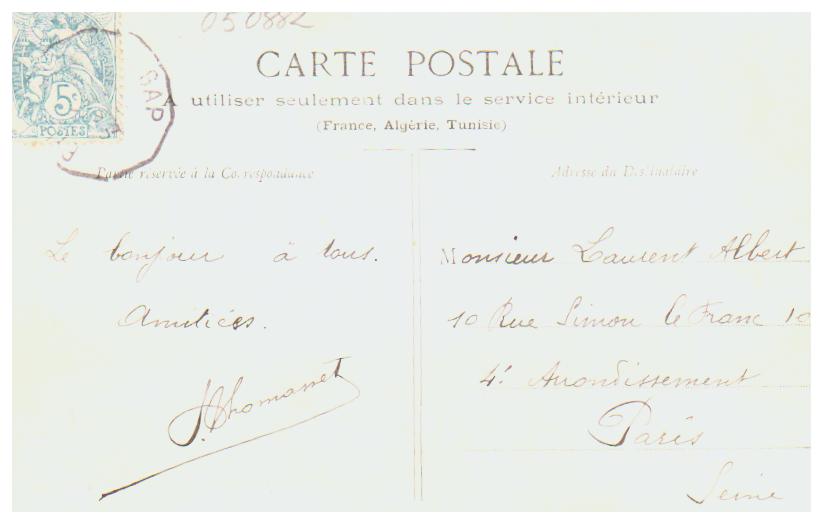 050882
5c
POSTES
GAP
CARTE POSTALE
A utiliser seulement dans le service intérieur
(France, Algérie, Tunisie)
Partie réservée à la Correspondance
Adresse du Destinataire
Le bonjour à tous.
Amitiées.
J. Thomasset
Monsieur Laurent Albert
10 Rue Simon le Franc 10
4e Arrondissement
Paris
Seine